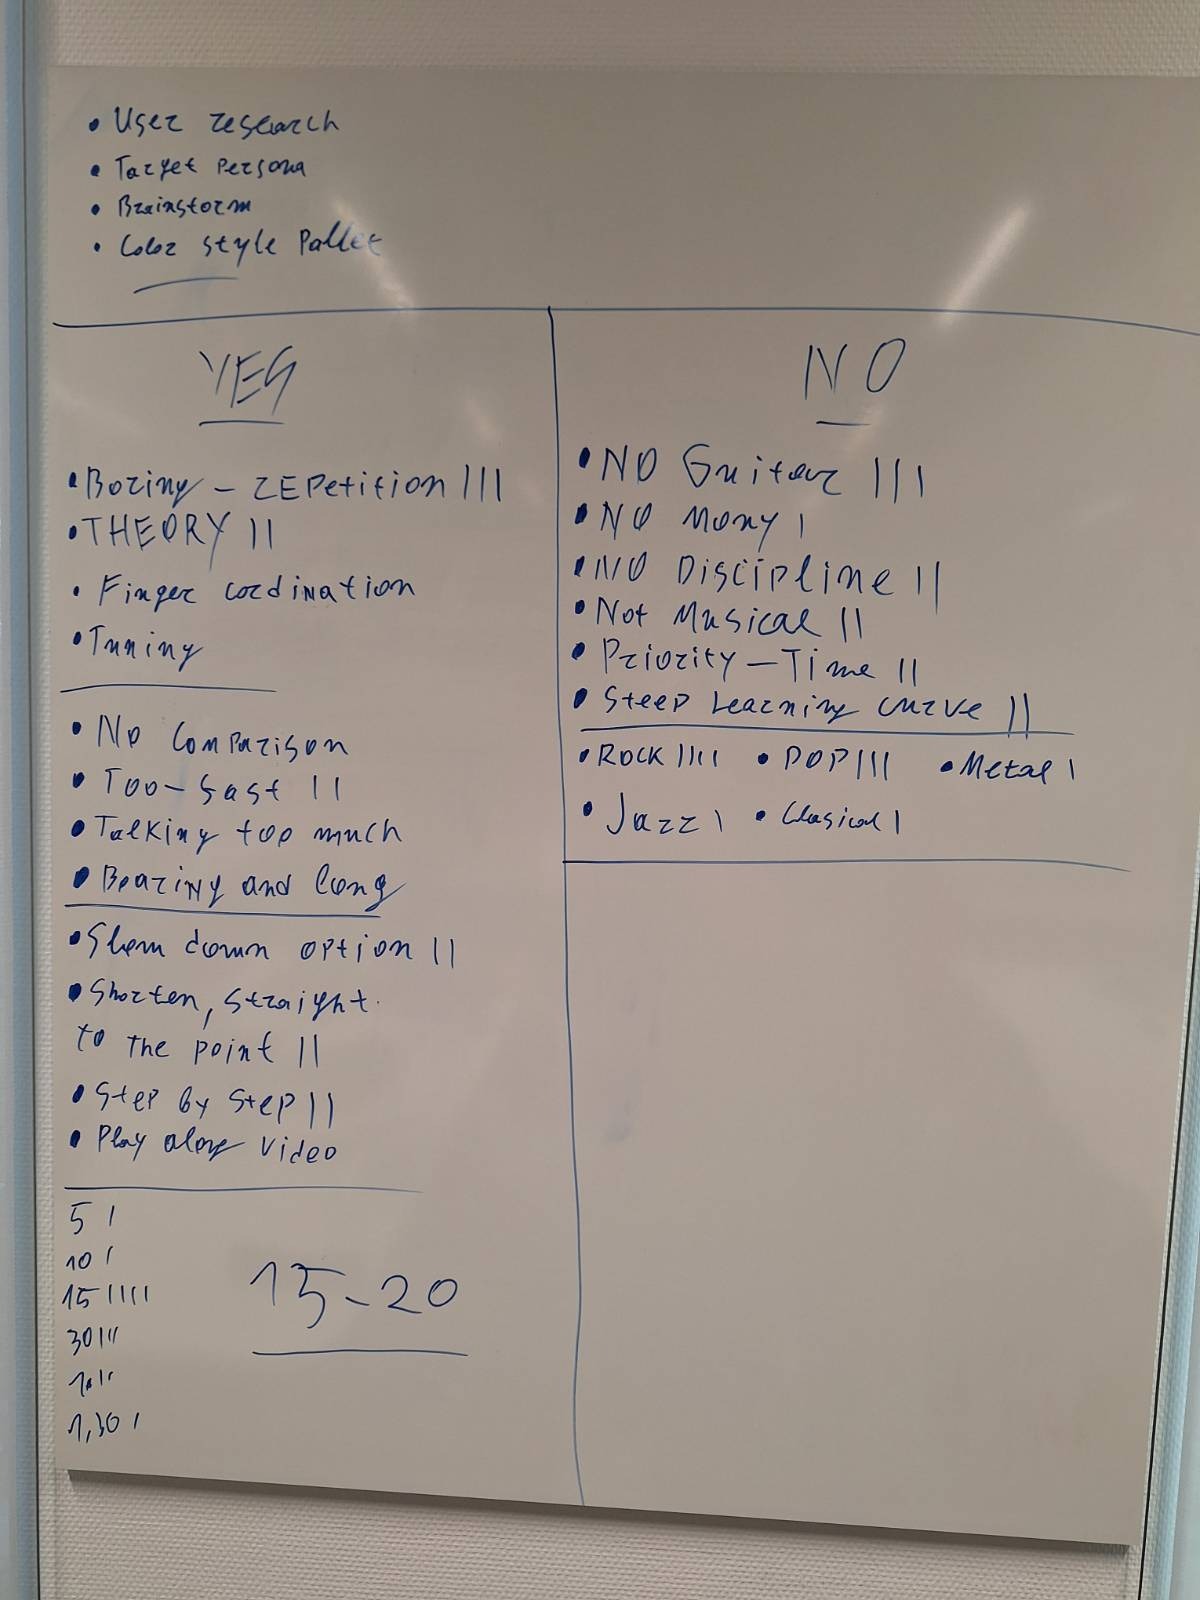 • User research
• Target Persona
• Brainstorm
• Color style Pallet
YES
• Boring – REPetition |||
• THEORY ||
• Finger cordination
• Tuning
• No Comparison
• Too-fast ||
• Talking too much
• Boaring and long
• Slow down option ||
• Shorten, straight
to the point ||
• Step by Step ||
• Play along video
5 |
10 |
15 ||||
30 |||
1,30 |
15-20
NO
• NO Guitar |||
• NO Mony |
• NO Discipline ||
• Not Musical ||
• Priority – Time ||
• Steep Learning curve ||
• ROCK |||| • POP ||| • Metal |
• Jazz | • Clasical |